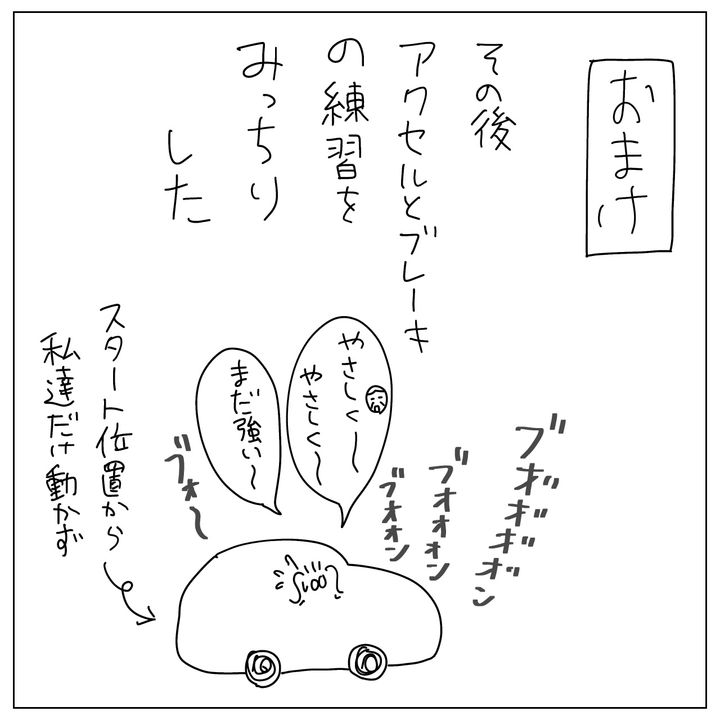 おまけ
その後
アクセルとブレーキ
の練習を
みっちり
した
やさしく〜
やさしく〜
まだ強い〜
ブォンボンボンボン
ブオオオン
ブオオン
ブォ〜
スタート位置から
私達だけ動かず